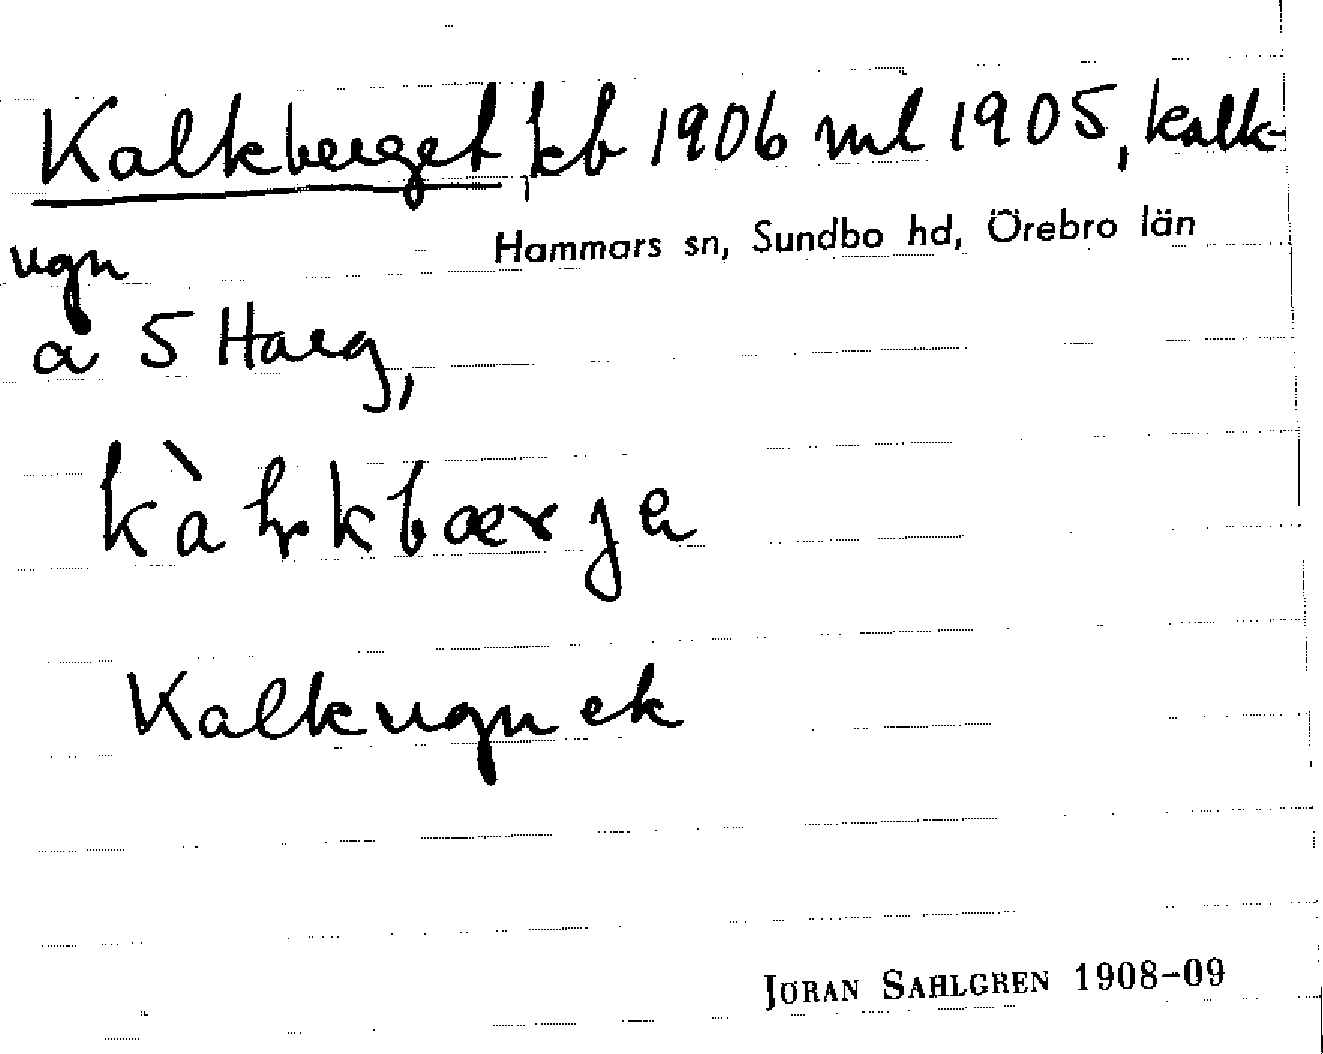 Kalkberget, kb 1906 ml 1905, kalk-
Hammars sn, Sundbo hd, Örebro län
ugn
a S Harg,
kàłkbærja
Kalkugn ek
JÖRAN SAHLGREN 1908-09